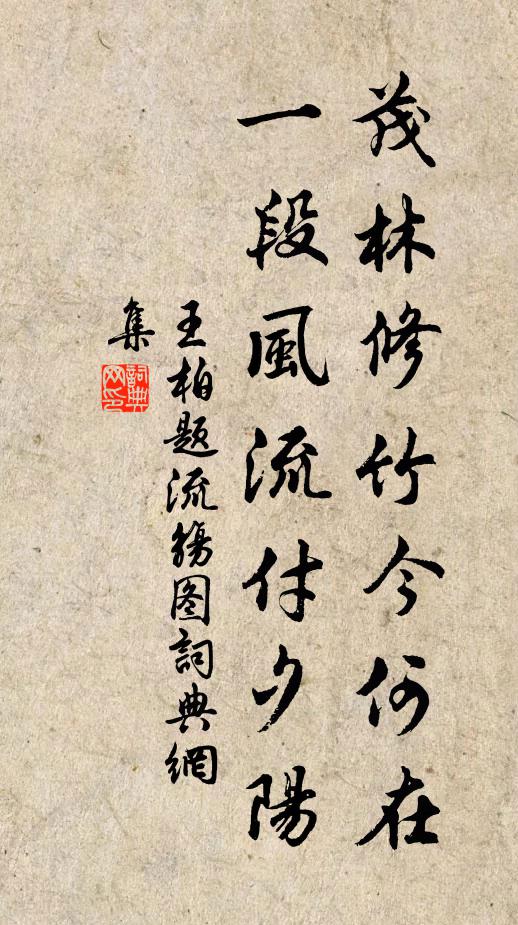 茂林修竹今何在
一段風流付夕陽
王柏題流觴图詞典網
集
詞典
网印